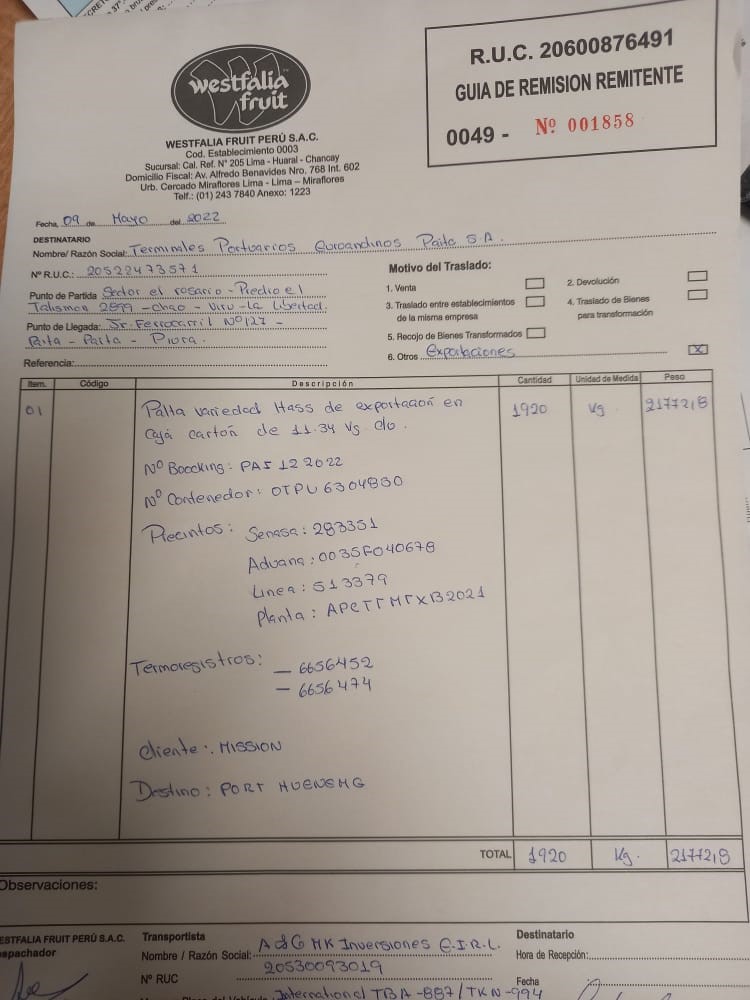 westfalia
fruit
WESTFALIA FRUIT PERÚ S.A.C.
Cod. Establecimiento 0003
Sucursal: Cal. Ref. N° 205 Lima - Huaral - Chancay
Domicilio Fiscal: Av. Alfredo Benavides Nro. 768 Int. 602
Urb. Cercado Miraflores Lima - Lima – Miraflores
Telf.: (01) 243 7840 Anexo: 1223
R.U.C. 20600876491
GUIA DE REMISION REMITENTE
0049 - Nº 001858
Fecha, 09 de Mayo del 2022
DESTINATARIO
Nombre/ Razón Social: Terminales Portuarios Euroandinos Paita S.A.
Nº R.U.C.: 20522473571
Punto de Partida Sector el rosario - Predio el
Talisman 2899 - Chao - Viru - La Libertad.
Punto de Llegada: Jr. Ferrocarril Nº 127 -
Paita - Paita - Piura.
Referencia:
Motivo del Traslado:
1. Venta
2. Devolución
3. Traslado entre establecimientos
de la misma empresa
4. Traslado de Bienes
para transformación
5. Recojo de Bienes Transformados
6. Otros Exportaciones X
Item. Código Descripción Cantidad Unidad de Medida Peso
01 Palta variedad Hass de exportación en 1920 Kg. 21772,8
caja cartón de 11.34 Kg c/u.
Nº Boocking: PAI 122022
Nº Contenedor: OTPU 6304830
Precintos: Senasa: 283351
Aduana: 0035F040678
Linea: 513379
Planta:
Termoregistros: — 6656452
— 6656474
Cliente: MISSION
Destino: PORT
TOTAL 1920 Kg. 21772,8
Observaciones:
WESTFALIA FRUIT PERÚ S.A.C.
Despachador
Transportista
Nombre / Razón Social: A&G MK Inversiones E.I.R.L.
Nº RUC 20530093019
International TBA-887/TKN-994
Destinatario
Hora de Recepción:
Fecha